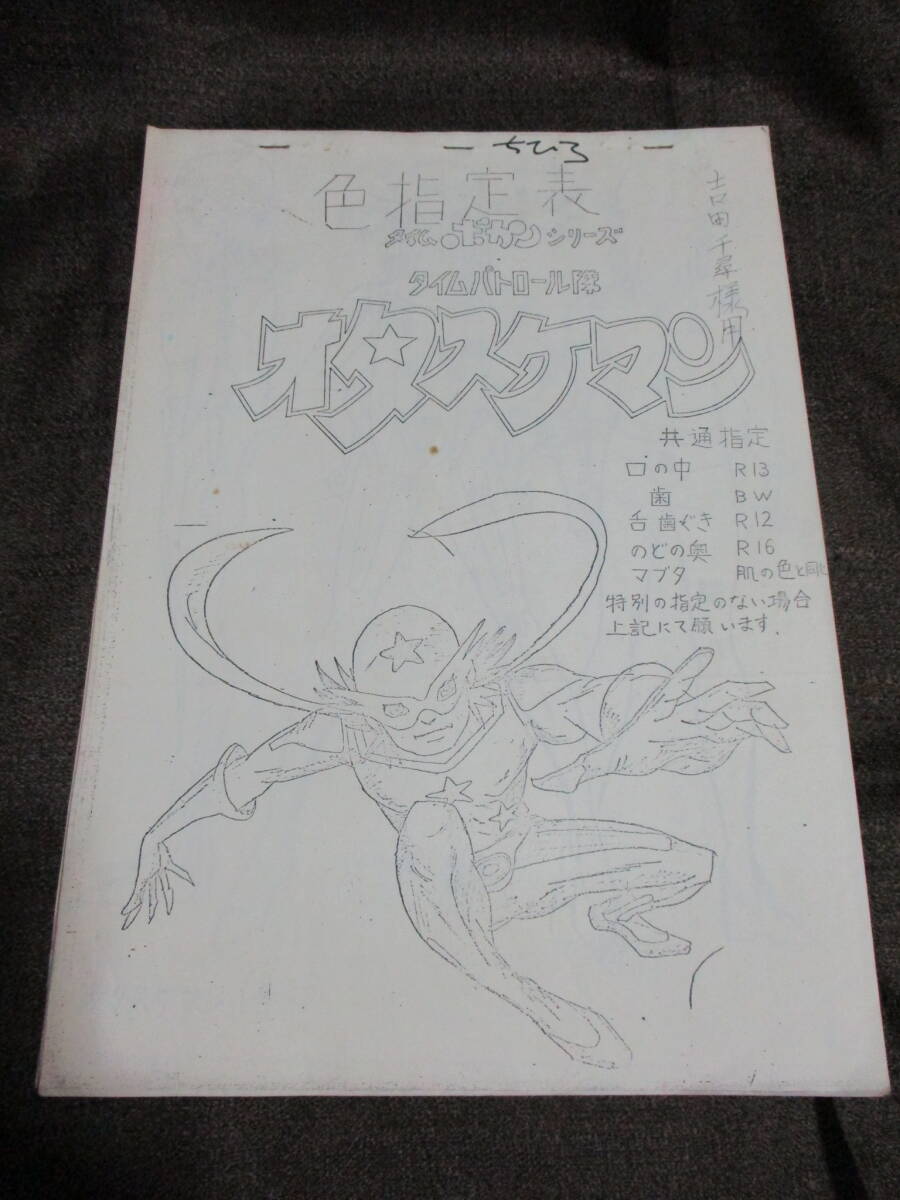 ちひろ
色指定表
吉田千尋様用
タイムボカンシリーズ
タイムパトロール隊
オタスケマン
共通指定
口の中 R13
歯 BW
舌歯ぐき R12
のどの奥 R16
マブタ 肌の色と同じ
特別の指定のない場合
上記にて願います.